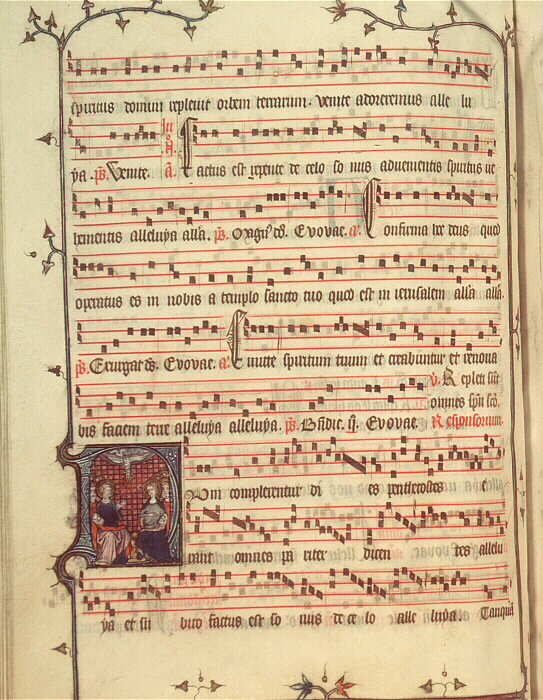 spiritus domini replevit orbem terrarum. venite adoremus alle lu
ya. ps. Venite. a. Factus est repente de celo so nus advenientis spiritus ve
hementis alleluya all'a. ps. Evovae. a. Confirma hoc deus quod
operatus es in nobis a templo sancto tuo quod est in ierusalem all'a all'a.
ps. Exurgat ds. Evovae. a. Emitte spiritum tuum et creabuntur et renova
v. Repleti sūt
omnes
bis faciem terre alleluya alleluya. ps. Evovae. Responsorium.
Dum complerentur di es penthecostes e
rant omnes pa riter dicen tes allelu
ya et su bito factus est so nus de ce lo alle luya. Tanquā